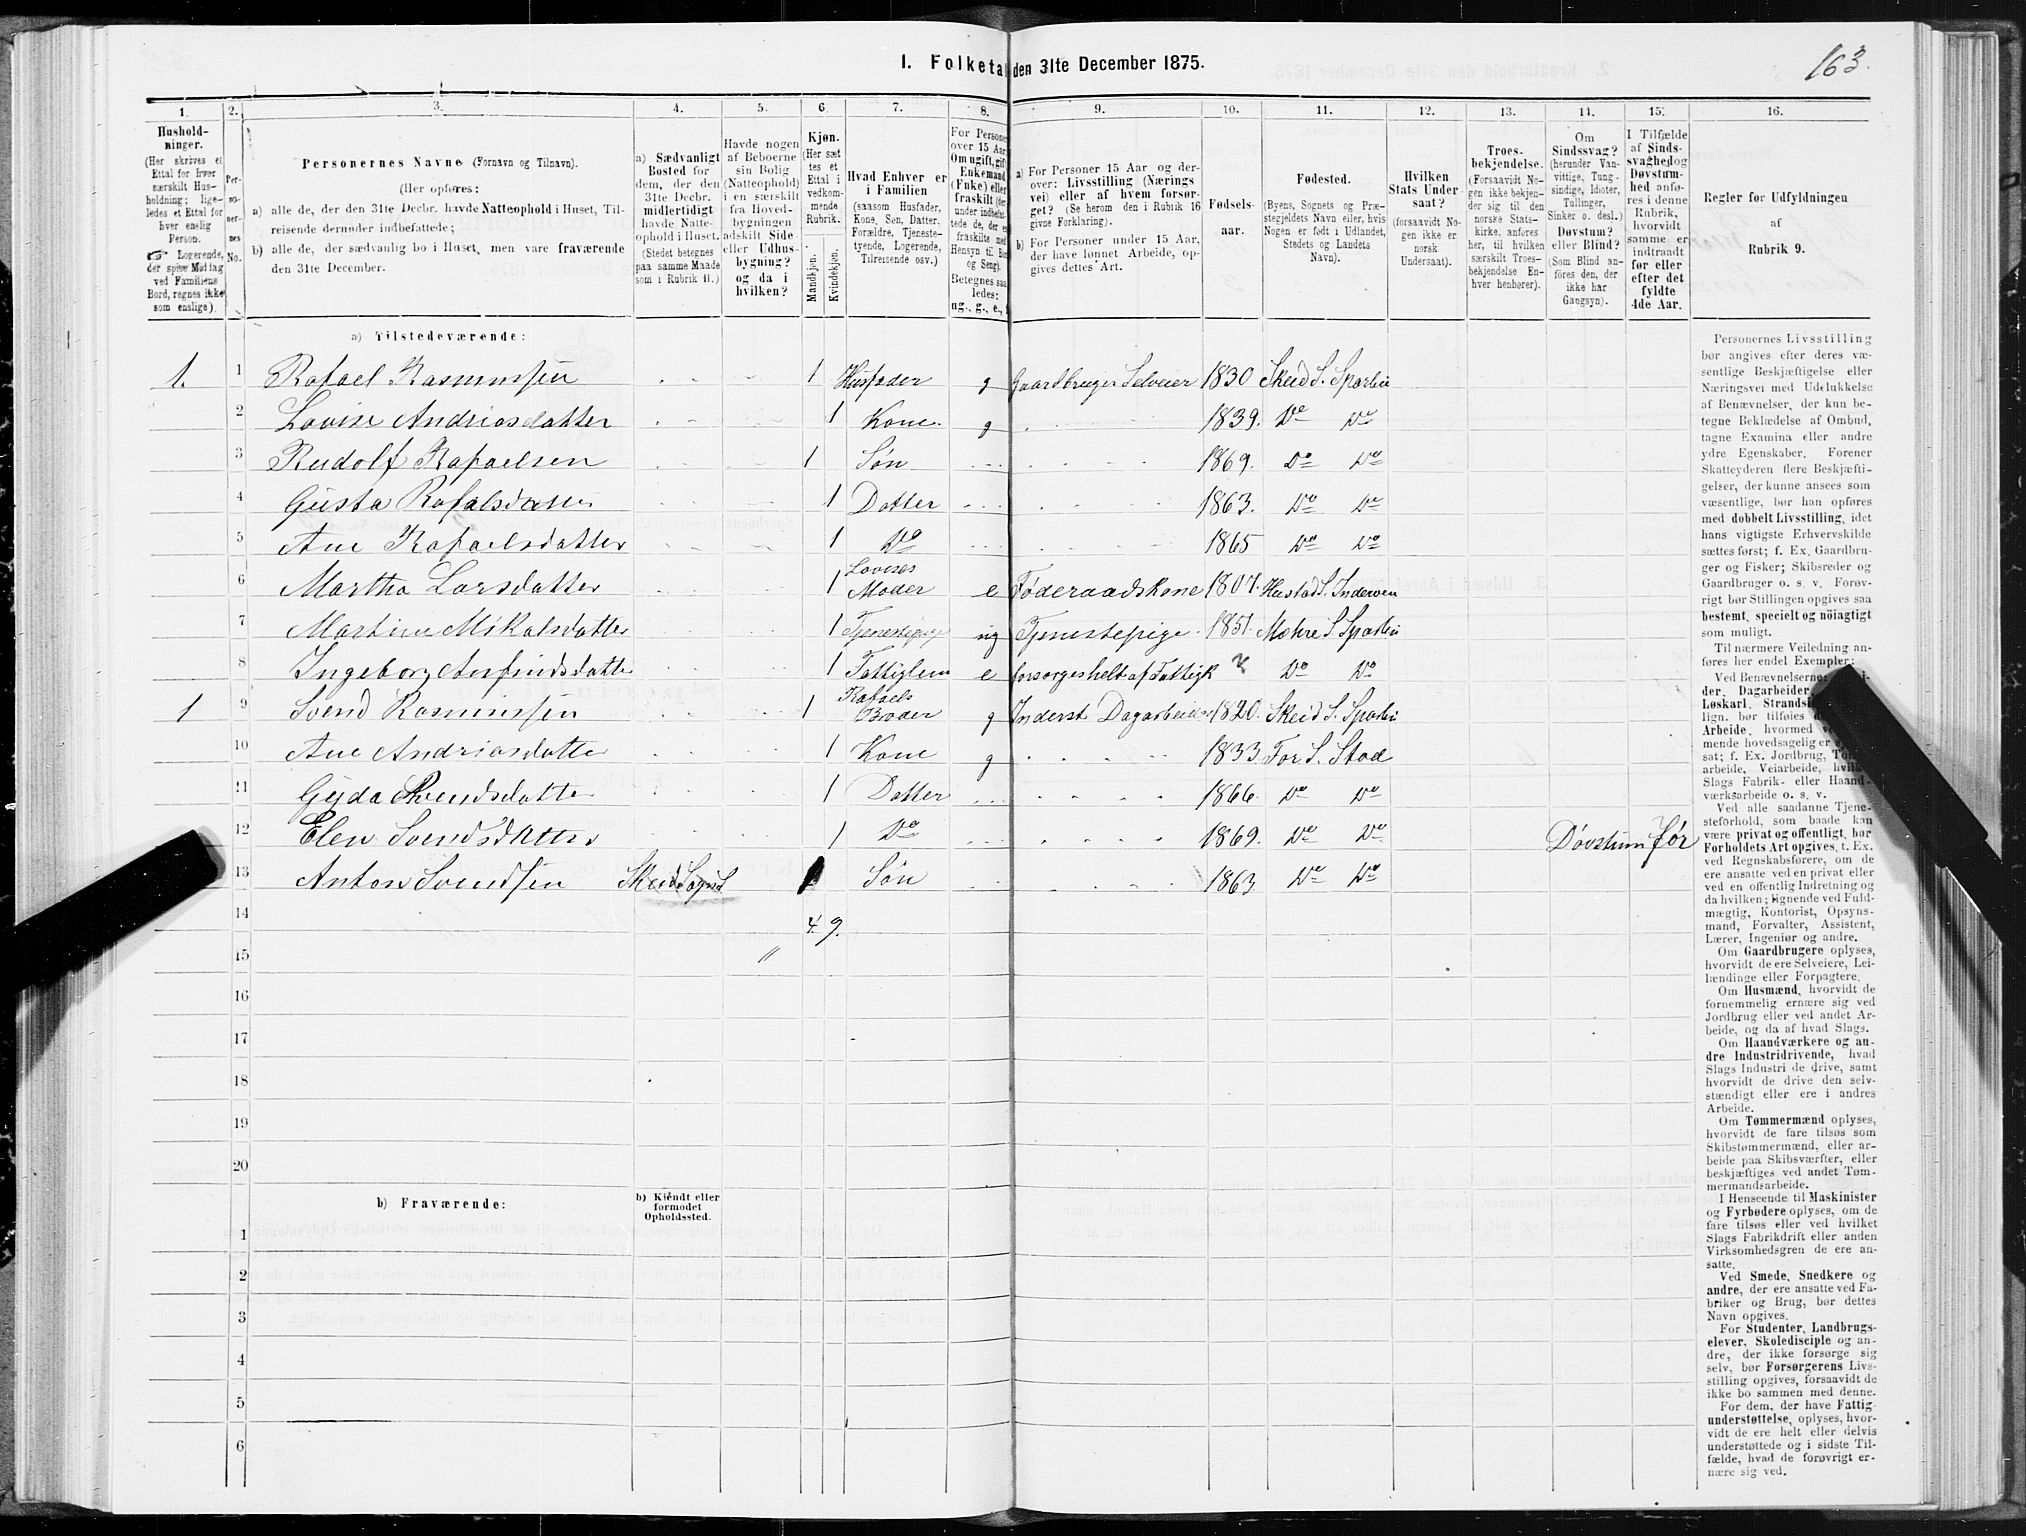 163.
I. Folketal den 31te December 1875.
1. 2. 3. 4. 5. 6. 7. 8. 9. 10. 11. 12. 13. 14. 15. 16.
Hushold-
ninger.
(Her skrives et
Ettal for hver
særskilt Hus-
holdning; lige-
ledes et Ettal for
hver enslig
Person.
☞ Logerende,
der spise Middag
ved Familiens
Bord, regnes ikke
som enslige).
Per-
so-
ner-
nes
No.
Personernes Navne (Fornavn og Tilnavn).
(Her opføres:
a) alle de, der den 31te Decbr. havde Natteophold i Huset, Til-
reisende derunder indbefattede;
b) alle de, der sædvanlig bo i Huset, men vare fraværende
den 31te December.
a) Sædvanligt
Bosted for
dem, der den
31te Decbr.
midlertidigt
havde Natte-
ophold i Huset.
(Stedet betegnes
paa samme Maade
som i Rubrik 11.)
Havde nogen
af Beboerne
sin Bolig
(Natteophold)
i en særskilt
fra Hoved-
bygningen
adskilt Side-
eller Udhus-
bygning?
og da i
hvilken?
Kjøn.
(Her sæt-
tes et
Ettal i
vedkom-
mende
Rubrik.
Mandkjøn.
Kvindekjøn.
Hvad Enhver er
i Familien
(saasom Husfader,
Kone, Søn, Datter,
Forældre, Tjeneste-
tyende, Logerende,
Tilreisende osv.)
For Persone
over 15 Aar
Om ugift, gif
Enkemand
(Enke) eller
fraskilt (for
under indbefat-
tede de, der er
fraskilte med
Hensyn til Bor
og Seng).
Betegnes saa
ledes:
ug., g., e.,
a) For Personer 15 Aar og der-
over: Livsstilling (Nærings
vei) eller af hvem forsør-
get? (Se herom den i Rubrik 16
givne Forklaring).
b) For Personer under 15 Aar,
der have lønnet Arbeide, op-
gives dettes Art.
Fødsels-
aar.
Fødested.
(Byens, Sognets og Præ-
stegjeldets Navn eller, hvis
Nogen er født i Udlandet,
Stedets og Landets
Navn).
Hvilken
Stats Under-
saat?
(forsaavidt No-
gen ikke er
norsk
Undersaat).
Troes-
bekjendelse.
(Forsaavidt No-
gen ikke bekjen-
der sig til den
norske Stats-
kirke, anføres
her, til hvilken
særskilt Troes-
bekjendelse En-
hver henhører).
Om
Sindssvag?
(herunder Van-
vittige, Tung-
sindige, Idioter,
Tullinger,
Sinker o. desl.)
Døvstum?
eller Blind?
(Som Blind an-
føres den, der
ikke har
Gangsyn).
I Tilfælde
af Sinds-
svaghed og
Døvstum-
hed anfø-
res i denne
Rubrik,
hvorvidt
samme er
indtraadt
før eller
efter det
fyldte
4de Aar.
Regler for Udfyldningen
af
Rubrik 9.
a) Tilstedeværende:
1. 1 Rafael Rasmussen 1 Husfader g Gaardbruger Selveier 1830 Skeid S. Sparbu
2 Lovise Andriasdatter 1 Kone. g 1839. Do Do
3 Rudolf Rafaelsen 1 Søn 1869. Do Do
4 Gusta Rafalsdatter 1 Datter 1863. Do Do
5 Ane Rafaelsdatter 1 Do 1865 Do Do
6 Martha Larsdatter 1 Lovises Moder e Føderaadskone 1807. Hustad S. Inderøen
7 Martine Mikalsdatter 1 Tjenestepige ug Tjenestepige. 1851. Mohre S Sparbu
8 Ingeborg Anfindsdatter 1 Fattiglem e forsorges helt af Fattigk ? Do Do
1 9 Svend Rasmussen 1 Rafaels Broder g Inderst Dagarbeider 1820. Skeid S. Sparbu
10 Ane Andriasdatter 1 Kone g 1833. For S. Stod
11 Gyda Svendsdatter 1 Datter 1866. Do Do
12 Elen Svendsdatter 1 Do 1869. Do Do Døvstum før
13 Anton Svendsen Skeid Sogn 1 Søn 1863 Do Do
14 4. 9.
15 "
16
17
18
19
20
b) Fraværende:
b) Kjendt eller
formodet
Opholdssted.
1
2
3
4
5
6
Personernes Livsstilling
bør angives efter deres væ-
sentlige Beskjæftigelse eller
Næringsvei med Udelukkelse
af Benævnelser, der kun be-
tegne Beklædelse af Ombud,
tagne Examina eller andre
ydre Egenskaber. Forener
Skatteyderen flere Beskjæfti-
gelser, der kunne ansees som
væsentlige, bør han opføres
med dobbelt Livsstilling, idet
hans vigtigste Erhvervskilde
sættes først; f. Ex. Gaardbru-
ger og Fisker; Skibsreder og
Gaardbruger o. s. v. Forøv-
rigt bør Stillingen opgives saa
bestemt, specielt og nøiagtigt
som muligt.
Til nærmere Veiledning an-
føres her endel Exempler:
Ved Benævnelserne:
der, Dagarbeider,
Løskarl, Strandsi
lign. bør tilføies
Arbeide, hvormed
mende hovedsagelig er
sat; f. Ex. Jordbrug,
arbeide, Veiarbeide,
Slags Fabrik- eller Haand-
værksarbeide o. s. v.
Ved alle saadanne Tjene-
steforhold, som baade kan
være privat og offentligt, bør
Forholdets Art opgives, t. Ex.
ved Regnskabsførere, om de
ere ansatte ved en privat eller
ved en offentlig Indretning og
da hvilken; lignende ved Fuld-
mægtig, Kontorist, Opsyns-
mand, Forvalter, Assistent,
Lærer, Ingeniør og andre.
Om Gaardbrugere oplyses,
hvorvidt de ere Selveiere, Lei-
lændinge eller Forpagtere.
Om Husmænd, hvorvidt de
fornemmelig ernære sig ved
Jordbrug eller ved andet Ar-
beide, og da af hvad Slags.
Om Haandværkere og an-
dre Industridrivende, hvad
Slags Industri de drive, samt
hvorvidt de drive den selv-
stændigt eller ere i andres
Arbeide.
Om Tømmermænd oplyses,
hvorvidt de fare tilsøs som
Skibstømmermænd, eller ar-
beide paa Skibsværfter, eller
beskjæftiges ved andet Tøm-
mermandsarbeide.
I Henseende til Maskinister
og Fyrbødere oplyses, om de
fare tilsøs eller ved hvilket
Slags Fabrikdrift eller anden
Virksomhedsgren de ere an-
satte.
Ved Smede, Snedkere og
andre, der ere ansatte ved Fa-
briker og Brug, bør dettes
Navn opgives.
For Studenter, Landbrugs-
elever, Skoledisciple og an-
dre, der ikke forsørge sig
selv, bør Forsørgerens Livs-
stilling opgives, forsaavidt de
ikke bo sammen med denne.
For dem, der have Fattig-
understøttelse, oplyses, hvor-
vidt de ere helt eller delvis
understøttede og i sidste Til-
fælde, hvad de forøvrigt er-
nære sig ved.